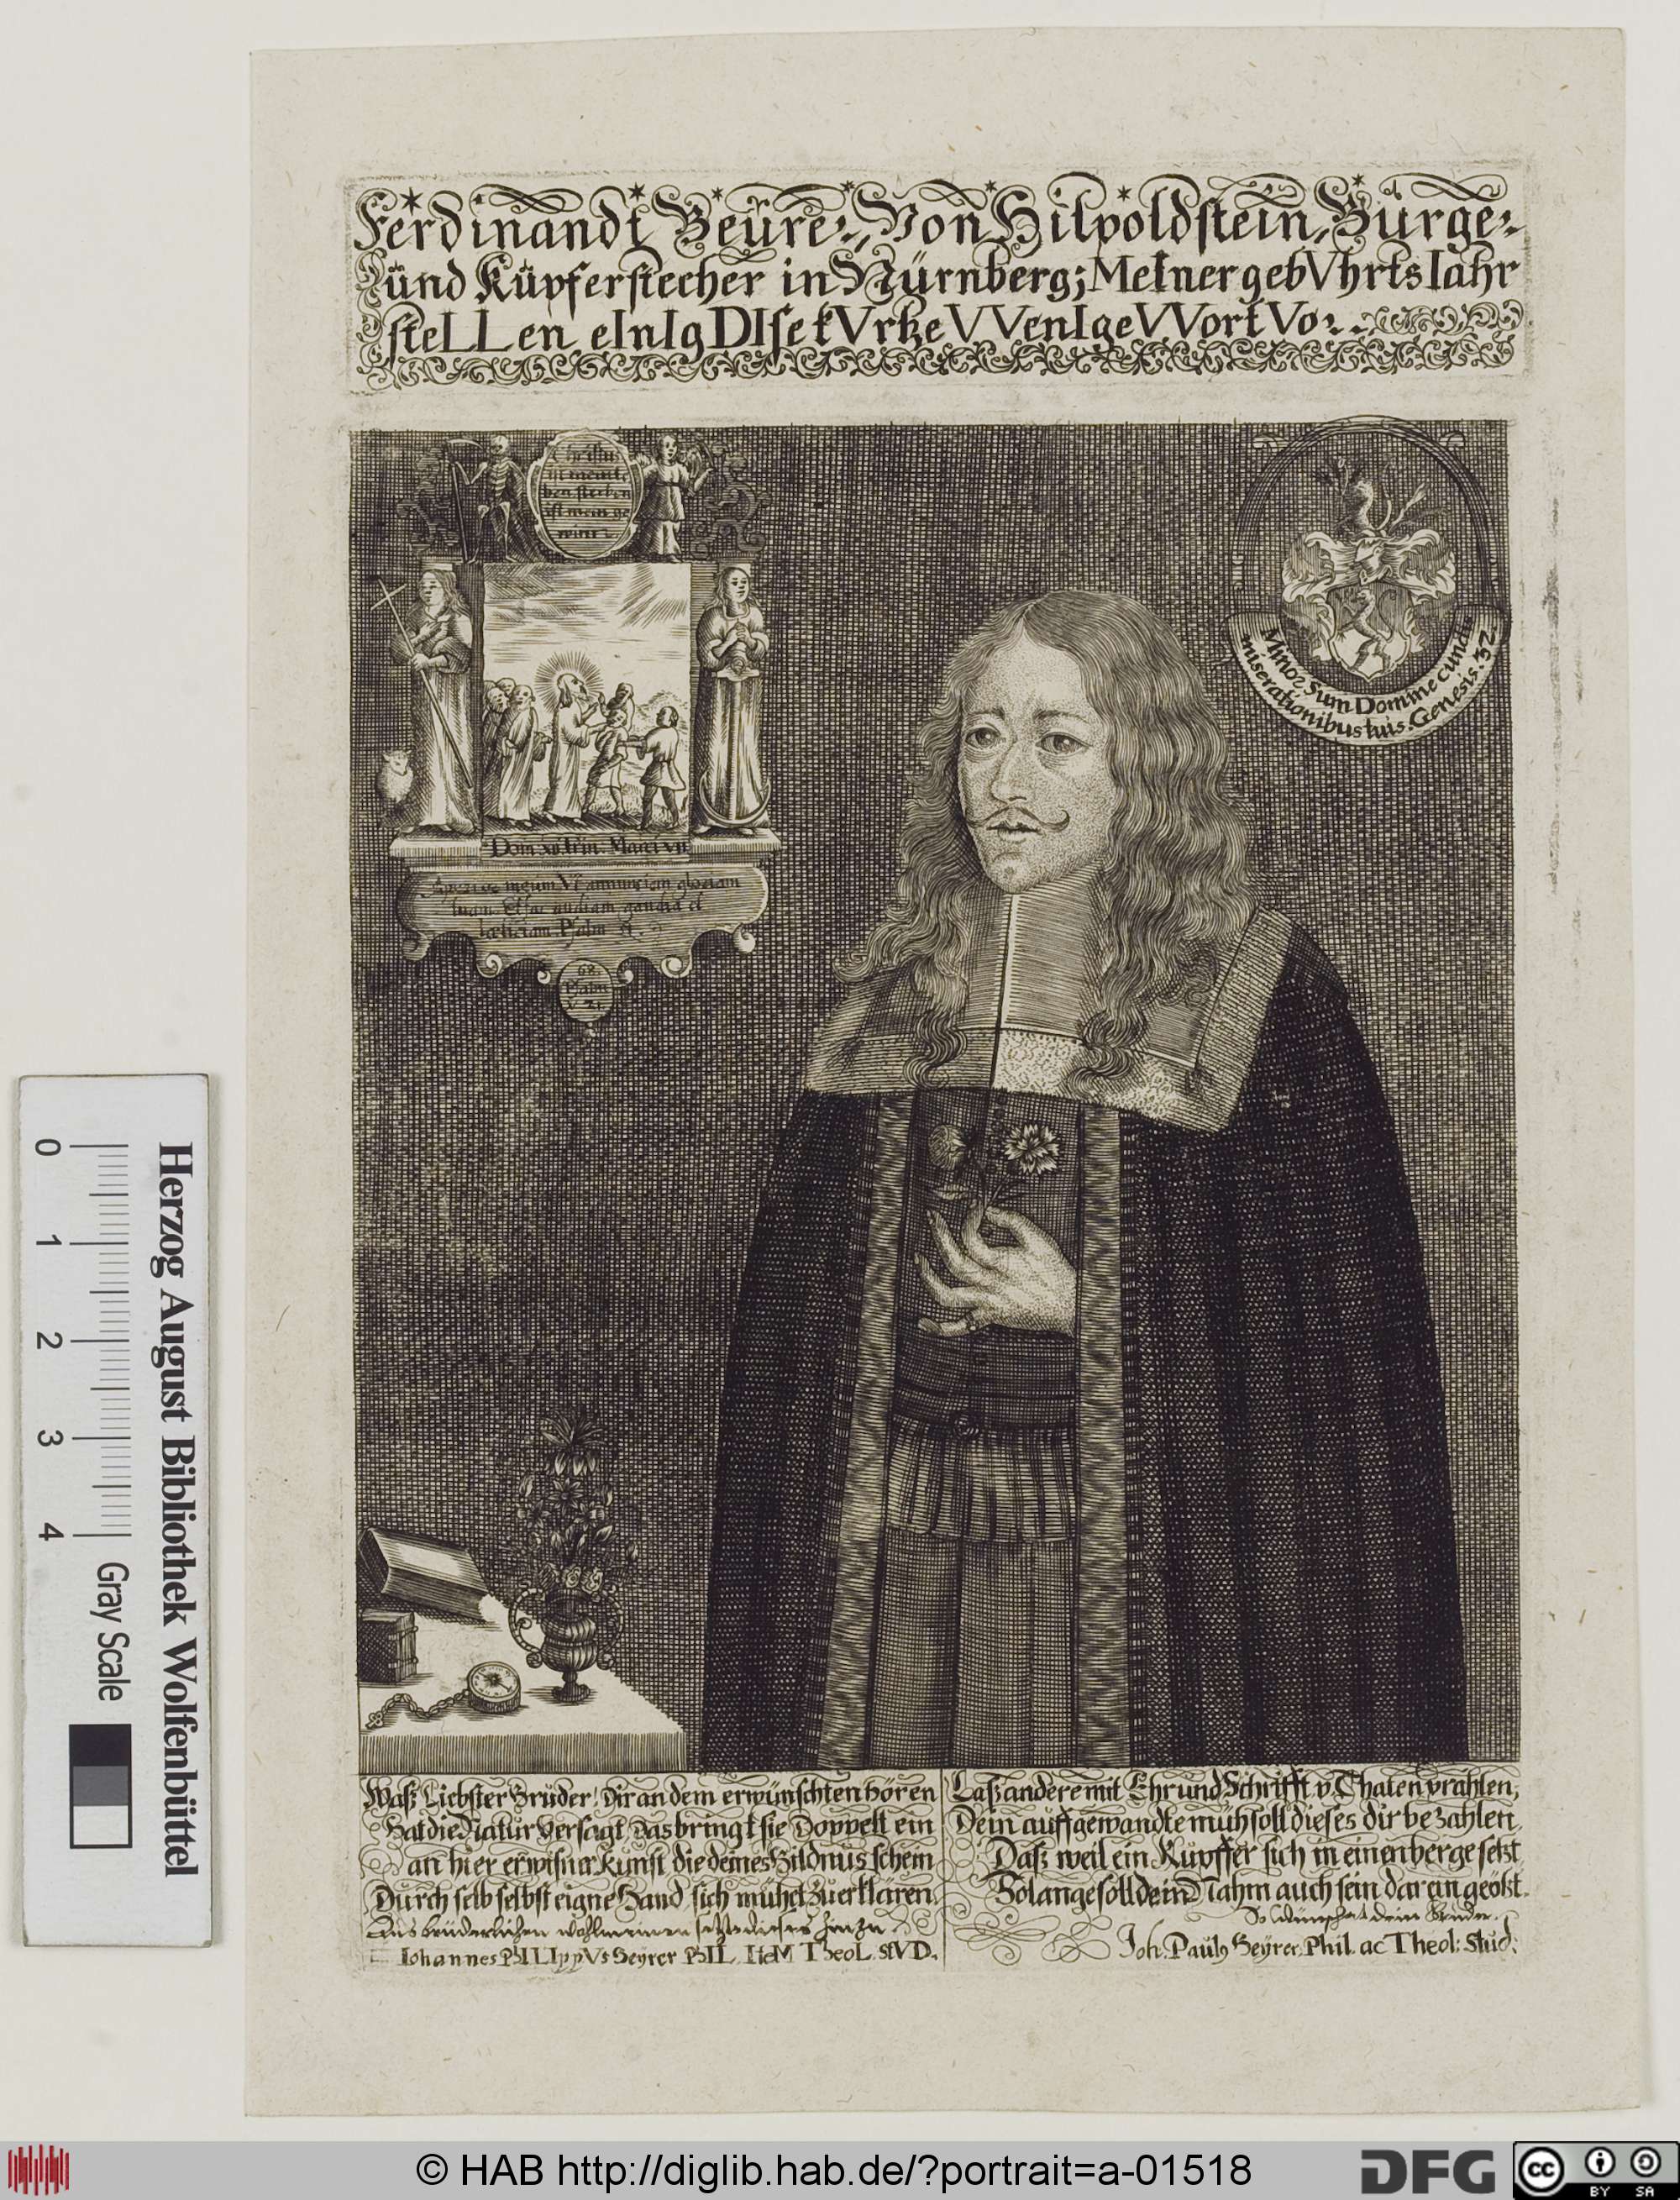 Ferdinandt Beüre, Von Hilpoldstein, Bürge:
ünd Küpferstecher in Nürnberg; MeIner gebVhrts Iahr
steLLen eInIg DIse kVrtze VVenIge VVort Vor
ist mein le
ben sterben
ist mein ge
winn
Minor Sum Domine cunctis
miserationibus tuis. Genesis. 32
Dom. XII Trin. Marci VII
meum Vt annunciem gloriam
tuam. Et audiam gaudia et
læticiam. Psalm
68
Psalm
21
Waß Liebster Brüder! Dir an dem erwünschten hören
Hat die Natür versagt, das bringt sie Doppelt ein
an hier erwisner künst, die deines Bildnüs schein
Dürch selb selbst eigne Hand, sich mühet zü erklären.
Aus brüderlichen wohlmeinen setzte dieses hinzu
Iohannes PHILIppVs Beyrer PHIL. IteM TheoL. stVD.
Laß andere mit Ehr und Schrifft v. Thaten prahlen,
Dein auffgewandte müh soll dieses dir bezahlen,
Daß weil ein Küpffer sich in einen berge setzt
So lange soll dein Nahm auch sein darein geötzt.
So wünschet dein Bruder.
Joh. Paulg Beyrer. Phil. ac Theol: Stud:
Herzog August Bibliothek Wolfenbüttel
0 1 2 3 4 Gray Scale
© HAB http://diglib.hab.de/?portrait=a-01518
DFG
cc BY SA